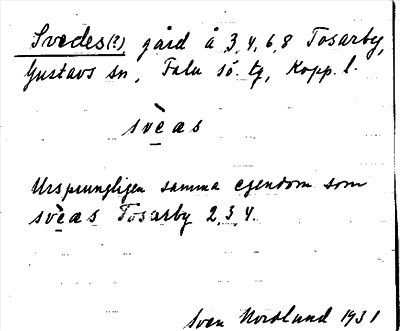 Svedes(?), gård å 3, 4, 6, 8 Tosarby,
Gustavs sn, Falu sö. tg, Kopp. l.
svè̱as
Ursprungligen samma egendom som
svè̱as Tosarby 2, 3, 4.
Sven Nordlund 1931